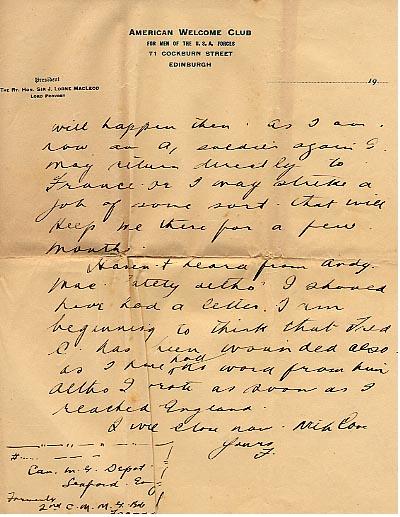 AMERICAN WELCOME CLUB
FOR MEN OF THE U.S.A. FORCES
71 COCKBURN STREET
EDINBURGH
President
THE RT. HON. SIR J. LORNE MACLEOD
LORD PROVOST
19
will happen then. As I am
now an A, soldier again I
may return directly to
France or I may strike a
job of some sort that will
keep me there for a few
months.
Haven't heard from Andy
Mac. lately altho' I should
have had a letter. I am
beginning to think that Fred
C. has been wounded also
as I have had no word from him
altho I wrote as soon as I
reached England.
I will close now. With Love
Yours,
F.
#
Can. M. G. Depot
Seaford. Eng
Formerly
2nd C. M. M. G. Bde
France